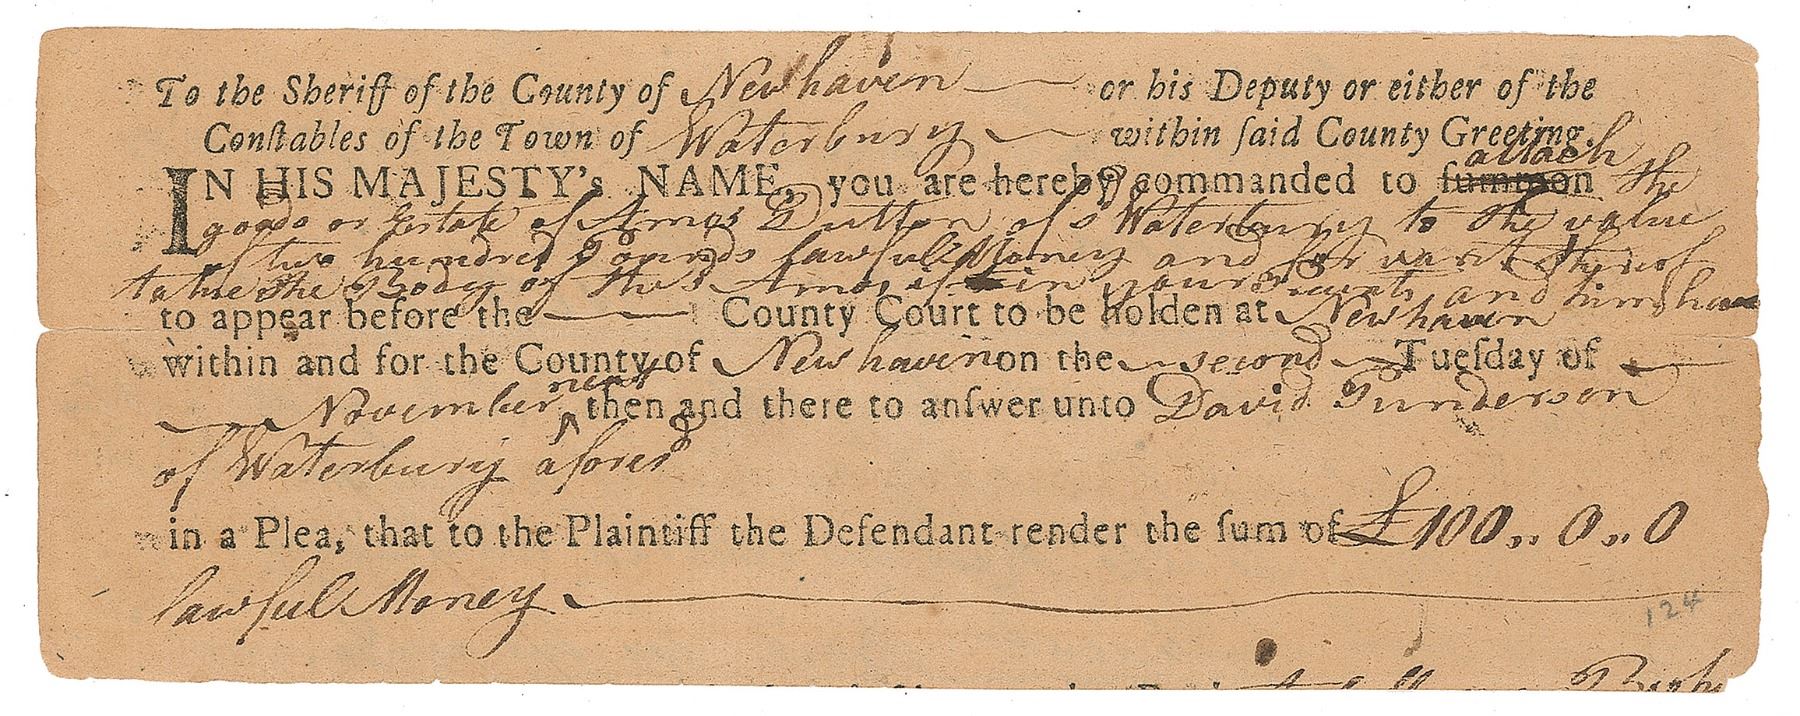 To the Sheriff of the County of Newhaven or his Deputy or either of the
Conſtables of the Town of Waterbury within ſaid County Greeting.
IN HIS MAJESTY's NAME, you are hereby commanded to ſummon attach the
goods or Estate of Amos Dutton of sd Waterbury to the value
of two hundred Pounds lawful Money and for want thereof
take the Body of the sd Amos if in your Precincts and him have
to appear before the County Court to be holden at Newhaven
within and for the County of Newhaven on the second Tueſday of
November next then and there to anſwer unto David Punderson
of Waterbury aforesd
in a Plea, that to the Plaintiff the Defendant render the ſum of £100,, 0,, 0
lawful Money
124